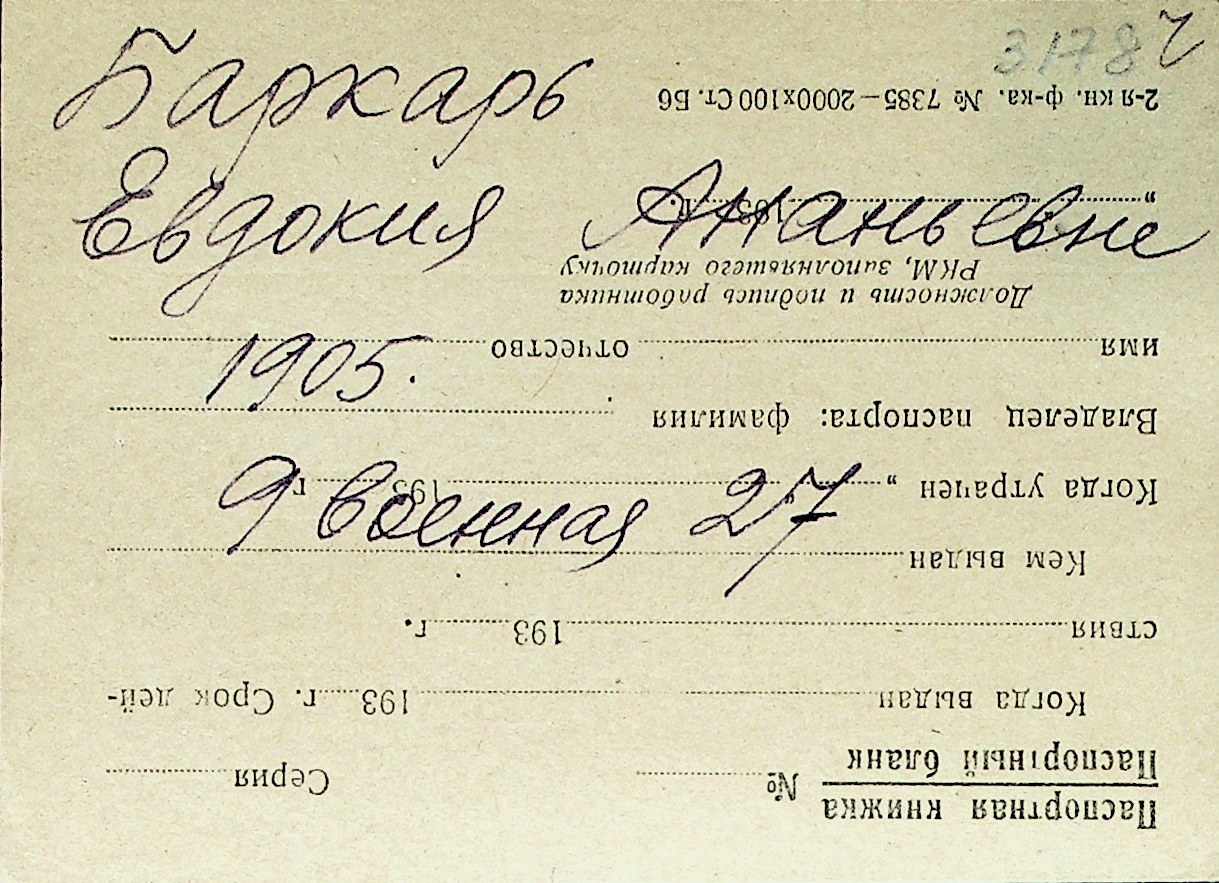 3178
Баркарь
Евдокия Ананьевне
1905.
9 Военная 27
Паспортная книжка
Паспортный бланк № Серия
Когда выдан 193 г. Срок дей-
ствия 193 г.
Кем выдан
Когда утрачен „ “ 193 г
Владелец паспорта: фамилия
имя отчество
Должность и подпись работника
РКМ, заполнявшего карточку
„ 193 г.
2-я кн. ф-ка. № 7385—2000х100 Ст. Б6